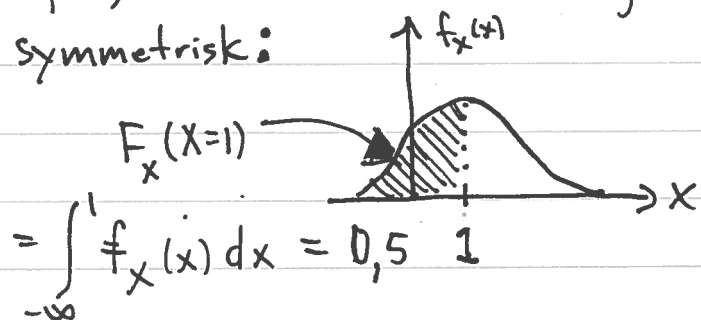 symmetrisk:
f_x(x)
F_x(X=1)
x
= ∫_{-∞}^{1} f_x(x) dx = 0,5
1